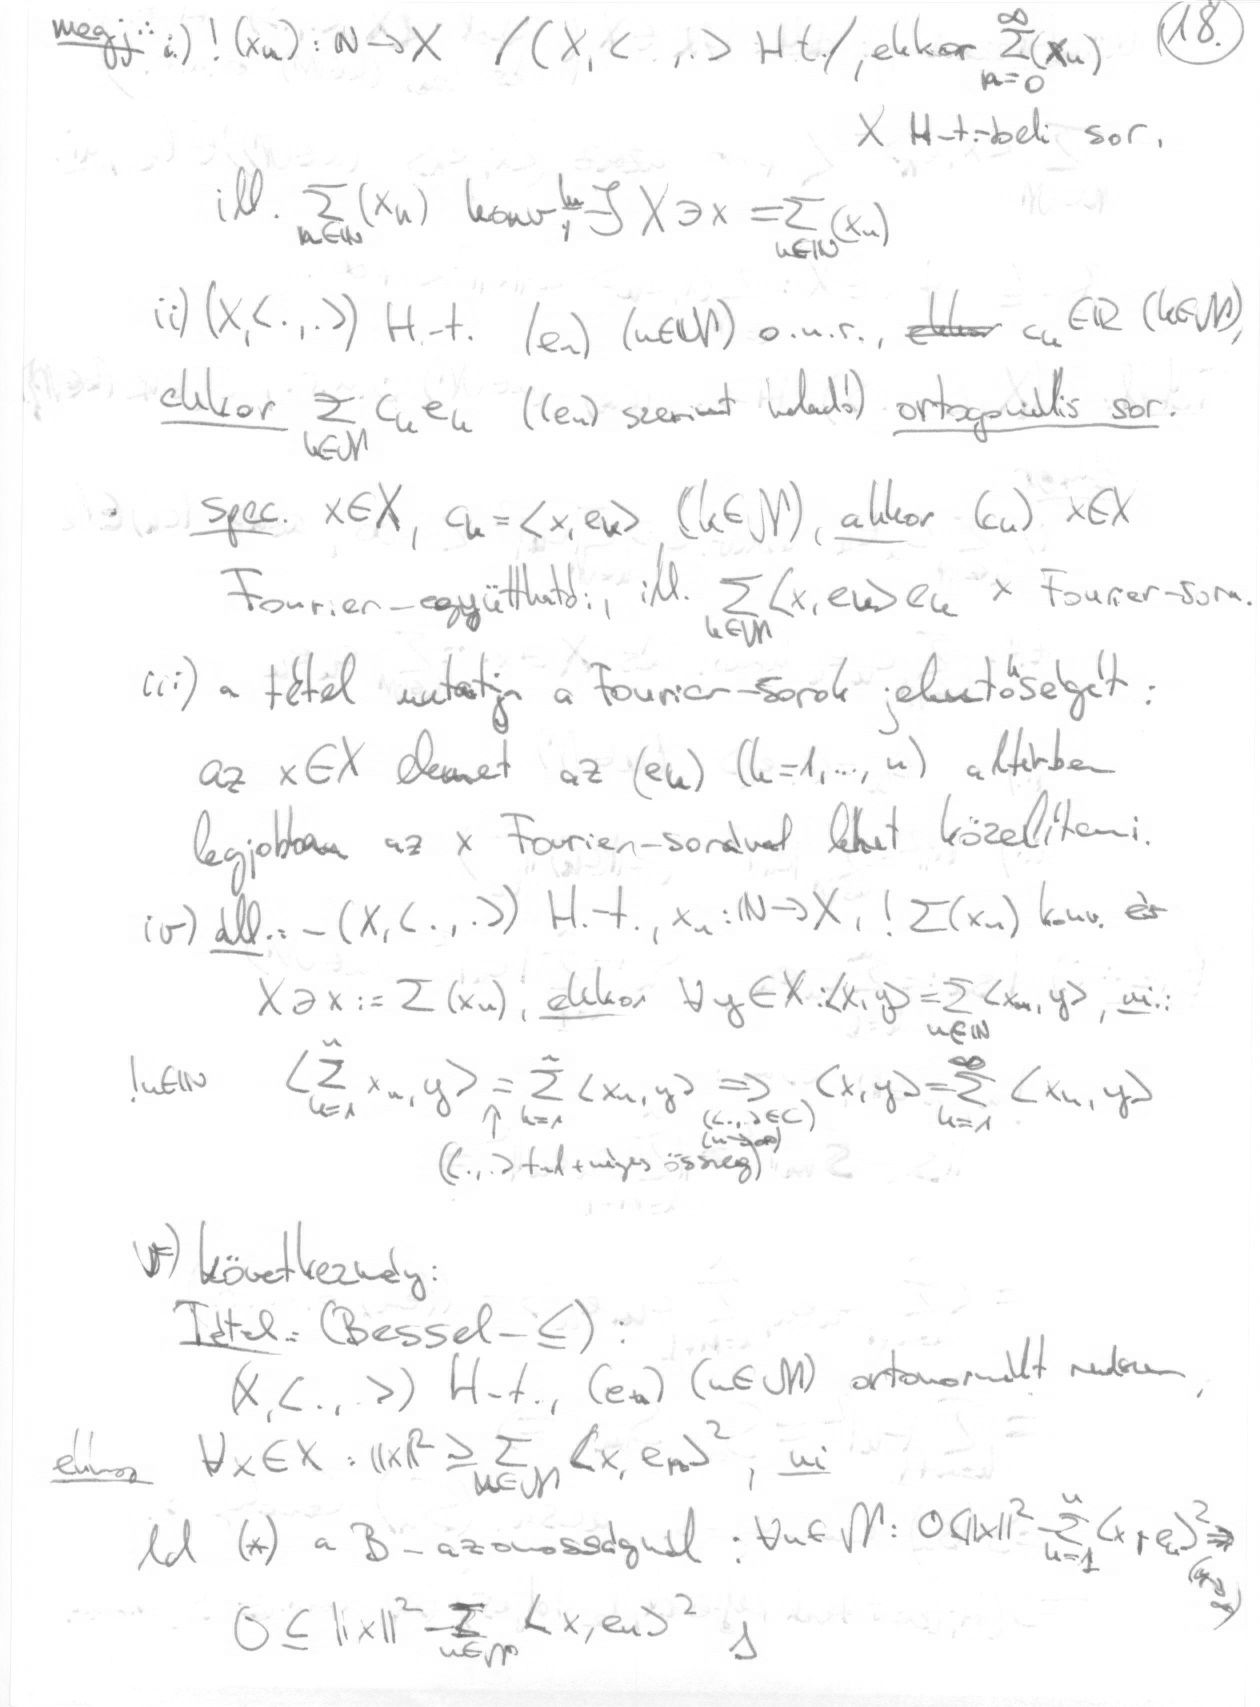 18.
megj.: i.) ! (xₙ) : ℕ → X / (X, <.,.> H.t./, ekkor ∑_{n=0}^{∞} (xₙ)
X H-t.-beli sor,
ill. ∑_{n∈ℕ} (xₙ) konv. ∃ X∋x = ∑_{n∈ℕ} (xₙ)
ii) (X, <.,.>) H.-t. (eₙ) (n∈𝒩) o.n.r., cₖ ∈ℝ (k∈𝒩),
ekkor ∑_{k∈𝒩} cₖ eₖ ((eₙ) szerint haladó) ortogonális sor.
spec. x∈X, cₖ = <x, eₖ> (k∈𝒩), akkor (cₖ) x∈X
Fourier-együtthatói, ill. ∑_{k∈𝒩} <x, eₖ> eₖ x Fourier-sora.
iii) a tétel mutatja a Fourier-sorok jelentőségét :
az x∈X elemet az (eₖ) (k=1,..., n) altérben
legjobban az x Fourier-sorával lehet közelíteni.
iv) áll.: - (X, <.,.>) H.-t., xₙ : ℕ→X, ! ∑(xₙ) konv. és
X∋x := ∑(xₙ), ekkor ∀y∈X : <x, y> = ∑_{n∈ℕ} <xₙ, y>, ui.:
! n∈ℕ <∑_{k=1}^{n} xₖ, y> = ∑_{k=1}^{n} <xₖ, y> ⟹ <x, y> = ∑_{k=1}^{∞} <xₖ, y>
↑ (<.,.>∈C)
(n→∞)
(<.,.> tul. + véges összeg)
v) következmény:
Tétel: (Bessel-≤) :
(X, <.,.>) H-t., (eₙ) (n∈𝒩) ortonormált rendszer,
ekkor ∀x∈X : ||x||² ≥ ∑_{n∈𝒩} <x, eₙ>², ui
ld (*) a B-azonosságnál : ∀n∈𝒩: 0≤||x||² - ∑_{k=1}^{n} <x, eₖ>² ⇒
(n→∞)
0 ≤ ||x||² - ∑_{n∈𝒩} <x, eₙ>²